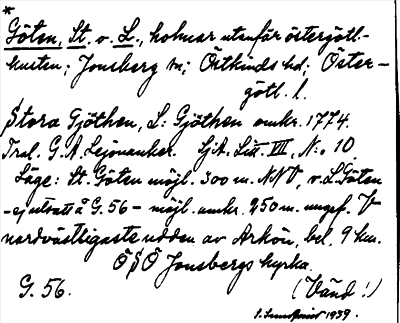 *
Göten, St. o. L., holmar utanför östergötl-
kusten; Jonsberg sn; Östkinds hd; Öster-
götl. l.
Stora Gjöthen, L: Gjöthen omkr. 1774.
Trol. G. A. Lejonanker. Sjk. Litt. VII, N:o 10.
Läge: St. Göten möjl. 300 m. NNV, o. L. Göten
- ej utsatt å G. 56 - möjl. omkr. 950 m. ungef. V
nordvästligaste udden av Arkön, bel. 9 km.
ÖSÖ Jonsbergs kyrka.
G. 56. (Vänd!)
1939.